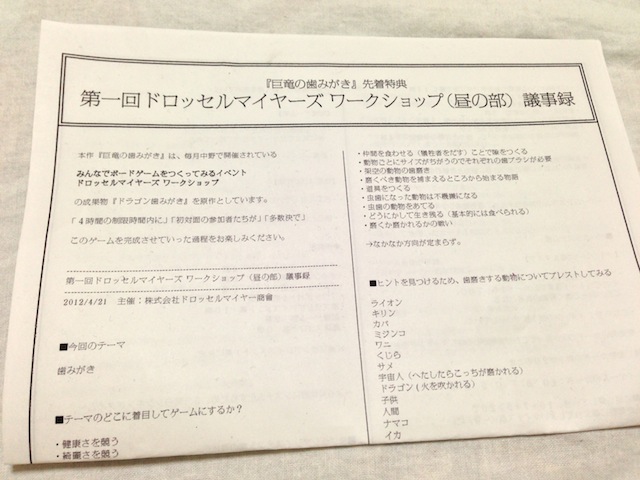 『巨竜の歯みがき』先着特典
第一回ドロッセルマイヤーズ ワークショップ（昼の部）議事録
本作『巨竜の歯みがき』は、毎月中野で開催されている
みんなでボードゲームをつくってみるイベント
ドロッセルマイヤーズ ワークショップ
の成果物『ドラゴン歯みがき』を原作としています。
「４時間の制限時間内に」「初対面の参加者たちが」「多数決で」
このゲームを完成させていった過程をお楽しみください。
第一回ドロッセルマイヤーズ ワークショップ（昼の部）議事録
2012/4/21　主催：株式会社ドロッセルマイヤー商會
■今回のテーマ
歯みがき
■テーマのどこに着目してゲームにするか？
・健康さを願う
・綺麗さを願う
・仲間を食わせる（犠牲者をだす）ことで隙をつくる
・動物ごとにサイズがちがうのでそれぞれの歯ブラシが必要
・架空の動物の歯磨き
・磨くべき動物を捕まえるところから始まる物語
・道具をつくる
・虫歯になった動物は不機嫌になる
・虫歯の動物をあてる
・どうにかして生き残る（基本的には食べられる）
・磨くか磨かれるかの戦い
→なかなか方向が定まらず。
■ヒントを見つけるため、歯磨きする動物についてブレストしてみる
ライオン
キリン
カバ
ミジンコ
ワニ
くじら
サメ
宇宙人（へたしたらこっちが磨かれる）
ドラゴン（火を吹かれる）
子供
人間
ナマコ
イカ